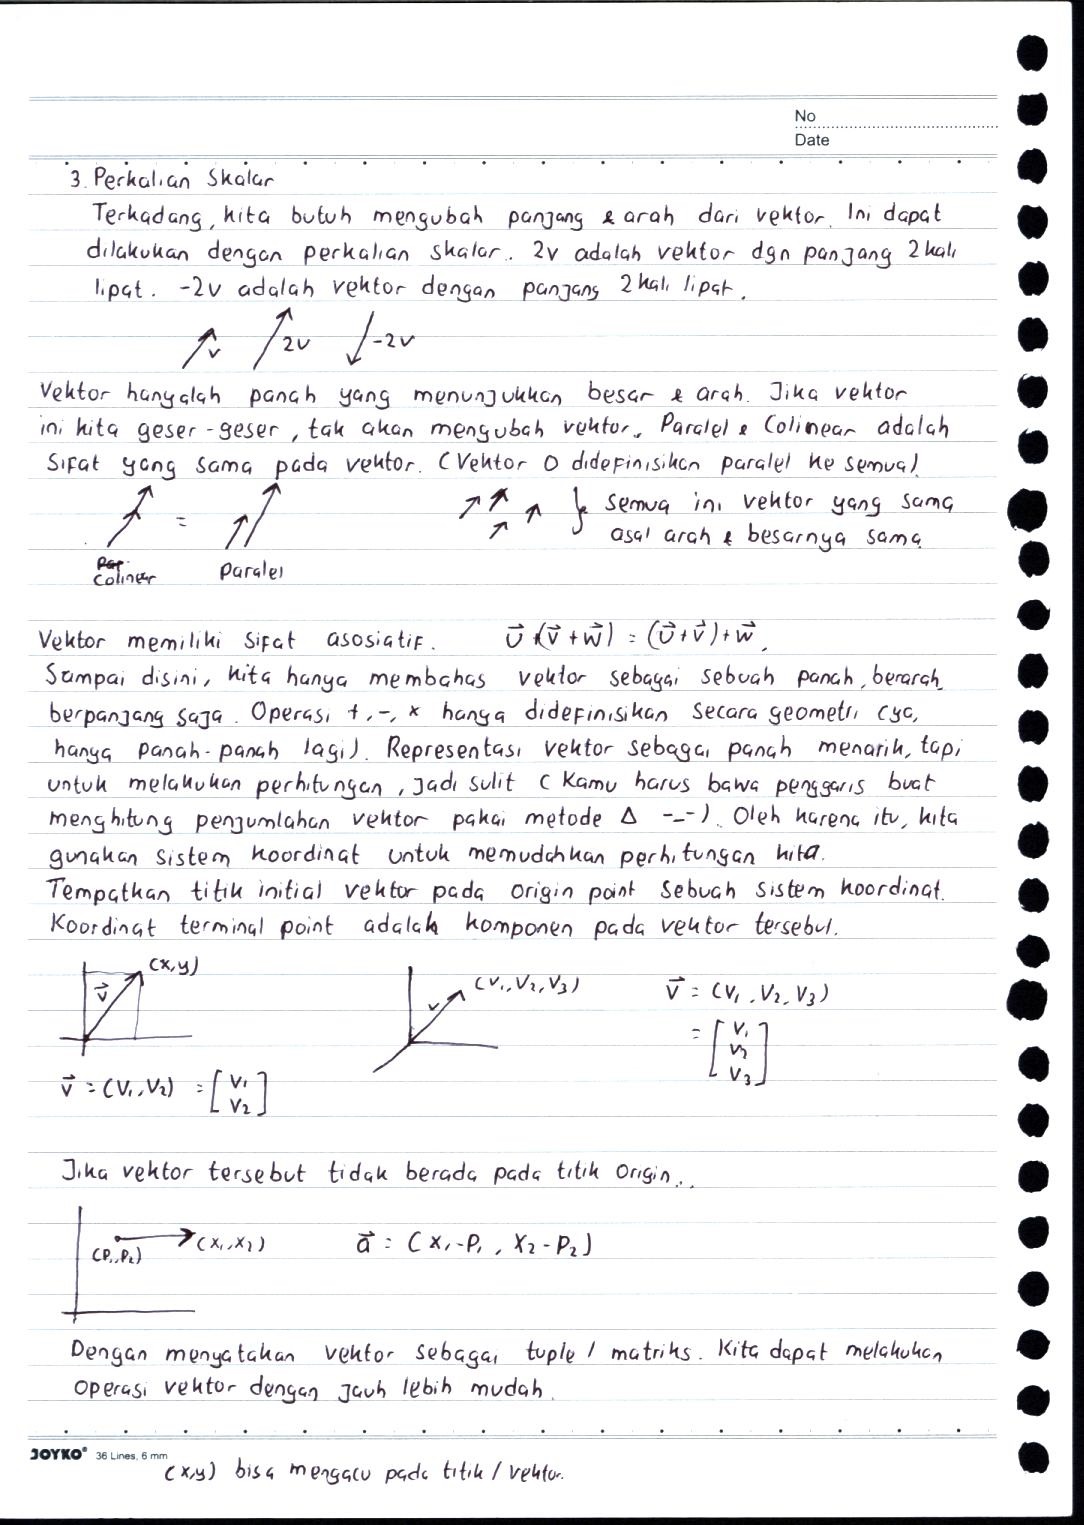 No
Date
3. Perkalian Skalar
Terkadang, kita butuh mengubah panjang & arah dari vektor. Ini dapat
dilakukan dengan perkalian skalar. 2v adalah vektor dgn panjang 2 kali
lipat. -2v adalah vektor dengan panjang 2 kali lipat.
v 2v -2v
Vektor hanyalah panah yang menunjukkan besar & arah. Jika vektor
ini kita geser-geser, tak akan mengubah vektor. Paralel & Colinear adalah
sifat yang sama pada vektor. (Vektor 0 didefinisikan paralel ke semua)
= } semua ini vektor yang sama
asal arah & besarnya sama
Colinear Paralel
Vektor memiliki sifat asosiatif. u⃗ + (v⃗ + w⃗) = (u⃗ + v⃗) + w⃗.
Sampai disini, kita hanya membahas vektor sebagai sebuah panah, berarah,
berpanjang saja. Operasi +, -, × hanya didefinisikan secara geometri (ya,
hanya panah-panah lagi). Representasi vektor sebagai panah menarik, tapi
untuk melakukan perhitungan, jadi sulit (Kamu harus bawa penggaris buat
menghitung penjumlahan vektor pakai metode Δ -_-). Oleh karena itu, kita
gunakan sistem koordinat untuk memudahkan perhitungan kita.
Tempatkan titik initial vektor pada origin point sebuah sistem koordinat.
Koordinat terminal point adalah komponen pada vektor tersebut.
(x,y) v⃗ (V₁, V₂, V₃) v v⃗ = (V₁, V₂, V₃)
= [V₁ V₂ V₃]
v⃗ = (V₁, V₂) = [V₁ V₂]
Jika vektor tersebut tidak berada pada titik origin..
(P₁, P₂) (X₁, X₂) a⃗ = (X₁-P₁, X₂-P₂)
Dengan menyatakan vektor sebagai tuple / matriks. Kita dapat melakukan
operasi vektor dengan jauh lebih mudah.
JOYKO® 36 Lines, 6 mm
(x,y) bisa mengacu pada titik / vektor.